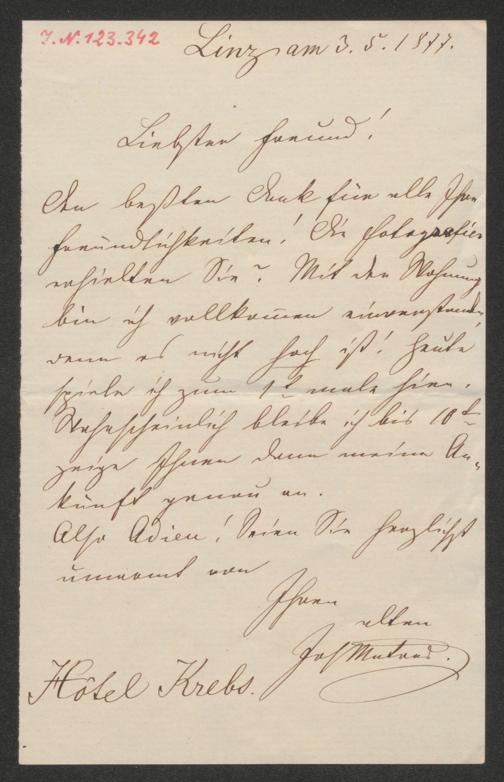 I.N. 123.342
Linz am 3. 5. 1877.
Liebster Freund!
Den beßten Dank für alle Ihre
Freundlichkeiten! Die Fotografien
erhielten Sie? Mit der Wohnung
bin ich vollkommen einverstanden,
wenn es nicht hoch ist! Heute
spiele ich zum 1t male hier.
Wahrscheinlich bleibe ich bis 10t
zeige Ihnen dann meine An-
kunft genau an.
Also Adieu! Seien Sie herzlichst
umarmt von
Ihren
alten
Hôtel Krebs.